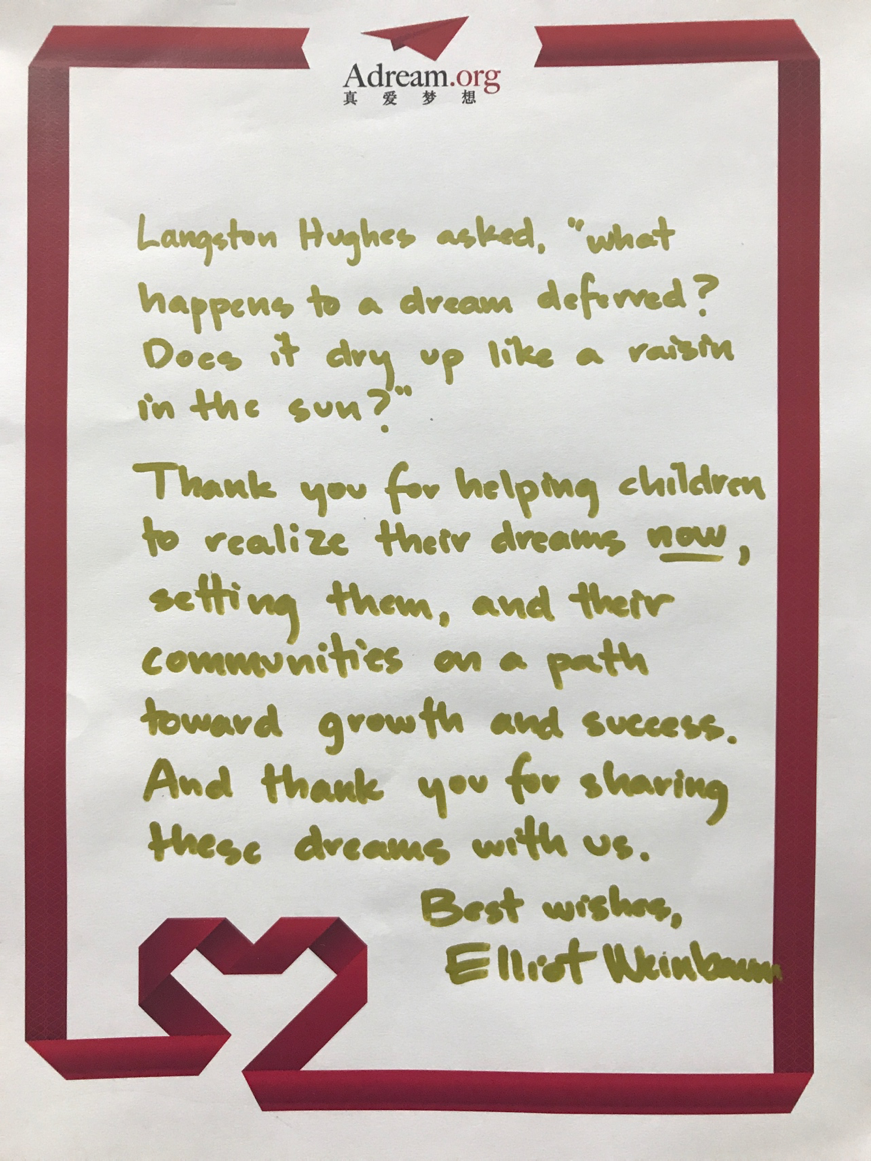 Adream.org
真爱梦想
Langston Hughes asked, "what
happens to a dream deferred?
Does it dry up like a raisin
in the sun?"
Thank you for helping children
to realize their dreams now,
setting them, and their
communities on a path
toward growth and success.
And thank you for sharing
these dreams with us.
Best wishes,
Elliot Weinbaum